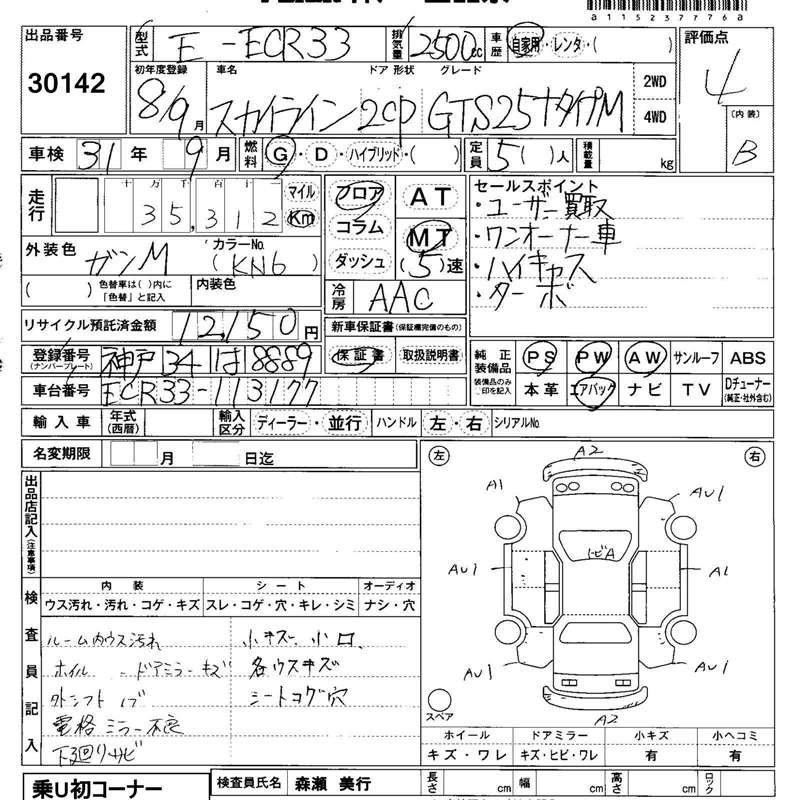 a115237776a
出品番号 30142
型式 E-ECR33 排気量 2500cc 車歴 自家用・レンタ・( )
評価点 4
初年度登録 車名 ドア 形状 グレード
8/9月 スカイライン 2CP GTS25ナタイプM
2WD
4WD
〔内装〕 B
車検 31年 9月 燃料 G・D・ハイブリッド・( ) 定員 5( )人 積載量 kg
走行 十 万 千 百 十
35,312 マイル Km
フロア コラム ダッシュ
AT
MT
(5)速
セールスポイント
・ユーザー買取
・ワンオーナー車
・ハイキャス
・ターボ
外装色 ガンM カラーNo. (KN6)
( ) 色替車は( )内に「色替」と記入 内装色
冷房 AAC
リサイクル預託済金額 12,150円
新車保証書(保証欄完備のもの)
保証書 取扱説明書
登録番号(ナンバープレート) 神戸34は8889
車台番号 ECR33-113177
純正装備品 PS PW AW サンルーフ ABS
装備品のみ○印を記入 本革 エアバック ナビ TV Dチューナー(純正・社外含む)
輸入車 年式(西暦) 輸入区分 ディーラー・並行 ハンドル 左・右 シリアルNo.
名変期限 月 日迄
出品店記入(注意事項)
左 右
A2
A1 AU1
ヒビA
AU1 A1
AU1 AU1
A2
スペア
検査員記入
内装 シート オーディオ
ウス汚れ・汚れ・コゲ・キズ スレ・コゲ・穴・キレ・シミ ナシ・穴
ルーム内ウス汚れ 小キズ、小ロ、
ホイル ドアミラーキズ 各ウスキズ
外シフトノブ シートコゲ穴
電格ミラー不良
下廻りサビ
ホイール ドアミラー 小キズ 小ヘコミ
キズ・ワレ キズ・ヒビ・ワレ 有 有
乗U初コーナー 検査員氏名 森瀬 美行 長さ cm 幅 cm 高さ cm ロック